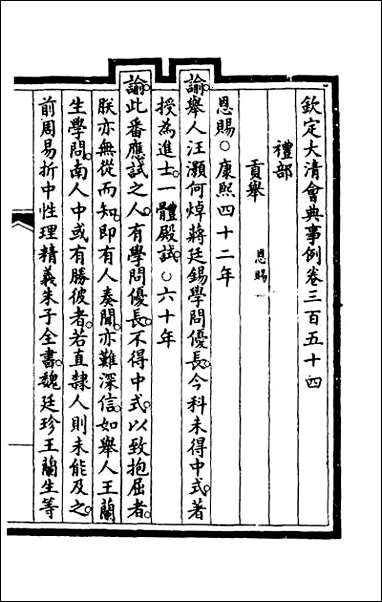 欽定大清會典事例卷三百五十四
禮部
貢舉 恩賜一
恩賜○康熙四十二年
諭舉人汪灝何焯蔣廷錫學問優長今科未得中式著
授為進士一體殿試○六十年
諭此番應試之人有學問優長不得中式以致抱屈者
朕亦無從而知即有人奏聞亦難深信如舉人王蘭
生學問南人中或有勝彼者若直隸人則未能及之
前周易折中性理精義朱子全書魏廷珍王蘭生等